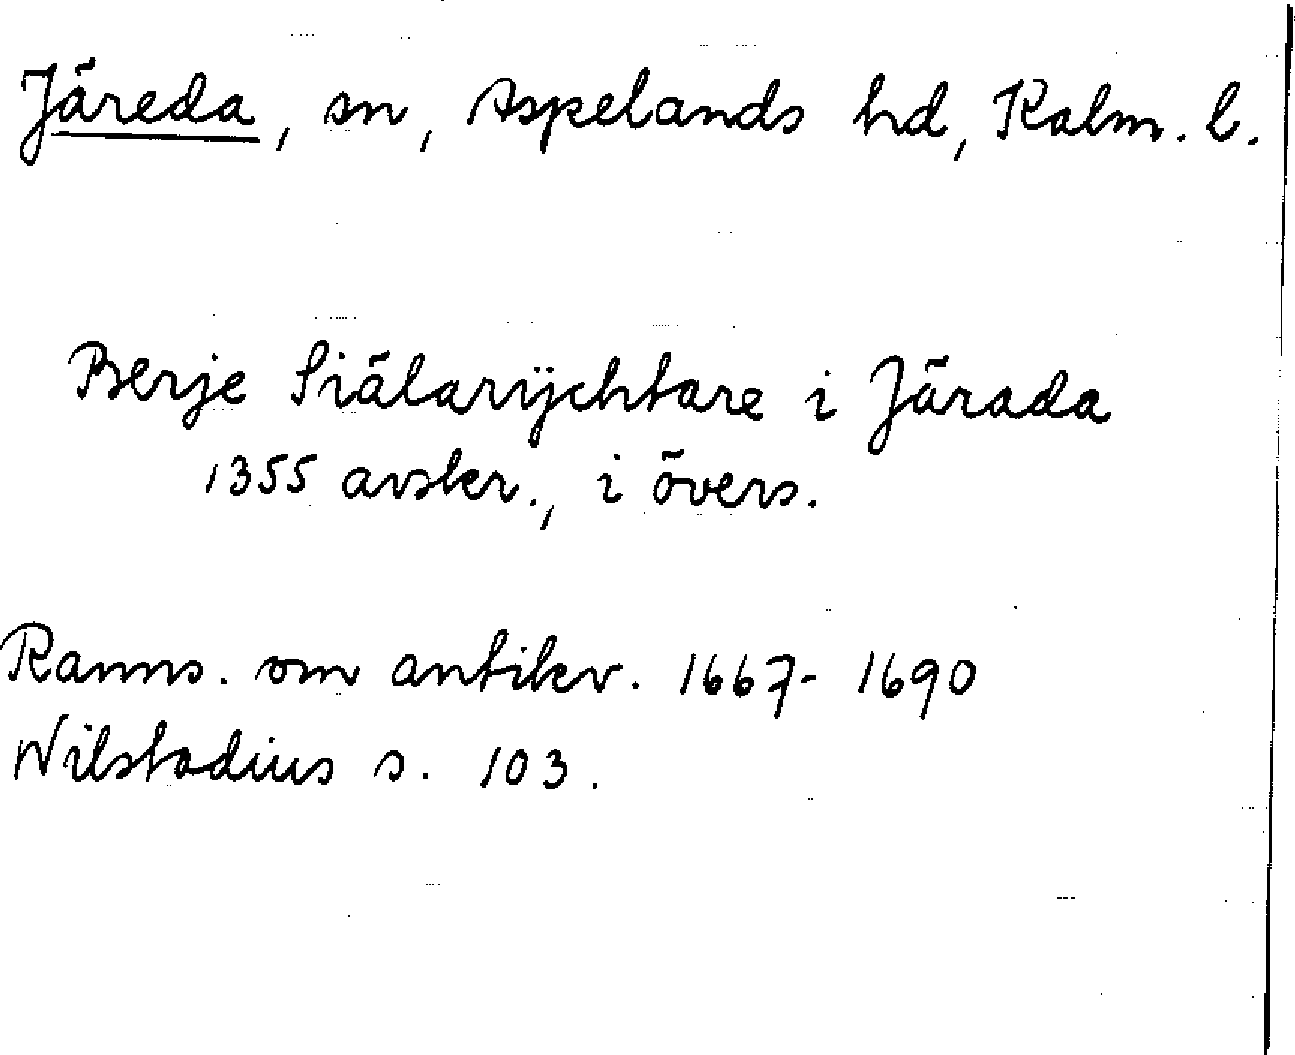 Järeda, sn, Aspelands hd, Kalm. l.
Berje Siälarÿchtare i Järada
1355 avskr., i övers.
Ranns. om antikv. 1667-1690
Wilstadius s. 103.